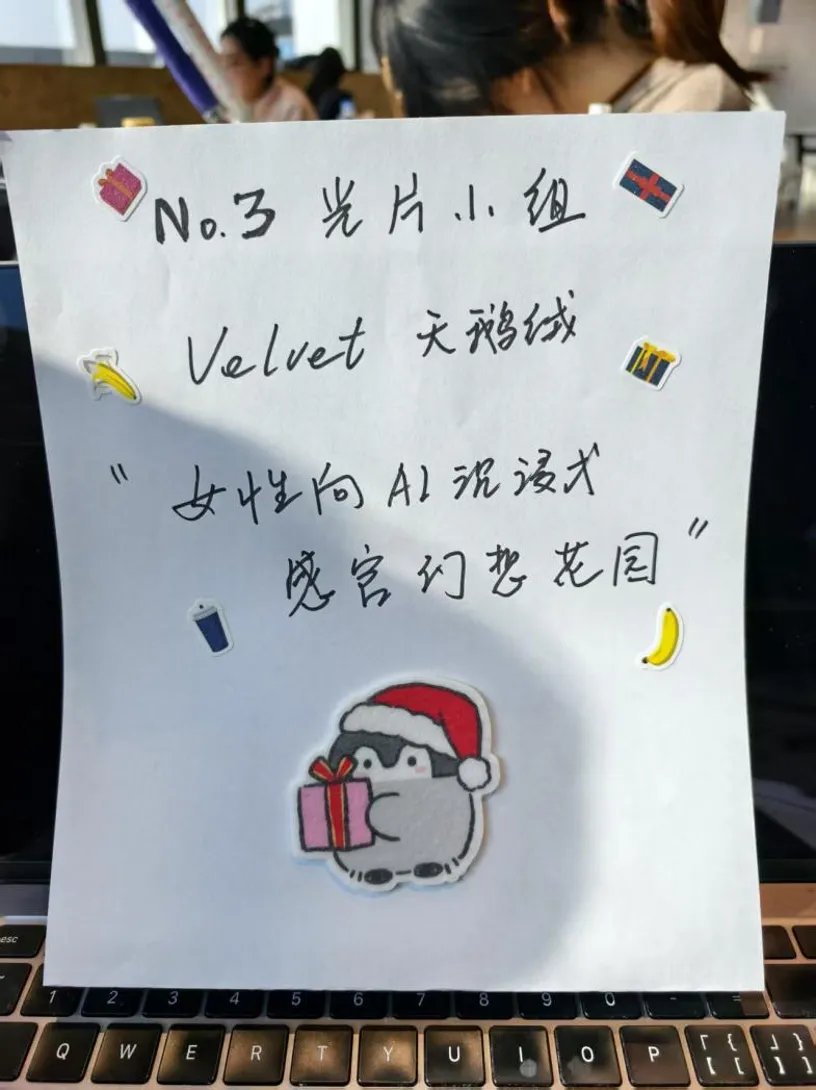 No.3 光片小组
Velvet 天鹅绒
"女性向AI沉浸式
感官幻想花园"
esc
1 2 3 4 5 6 7 8 9 0 - =
Q W E R T Y U I O P 「 { [ 『 」 } ] 』